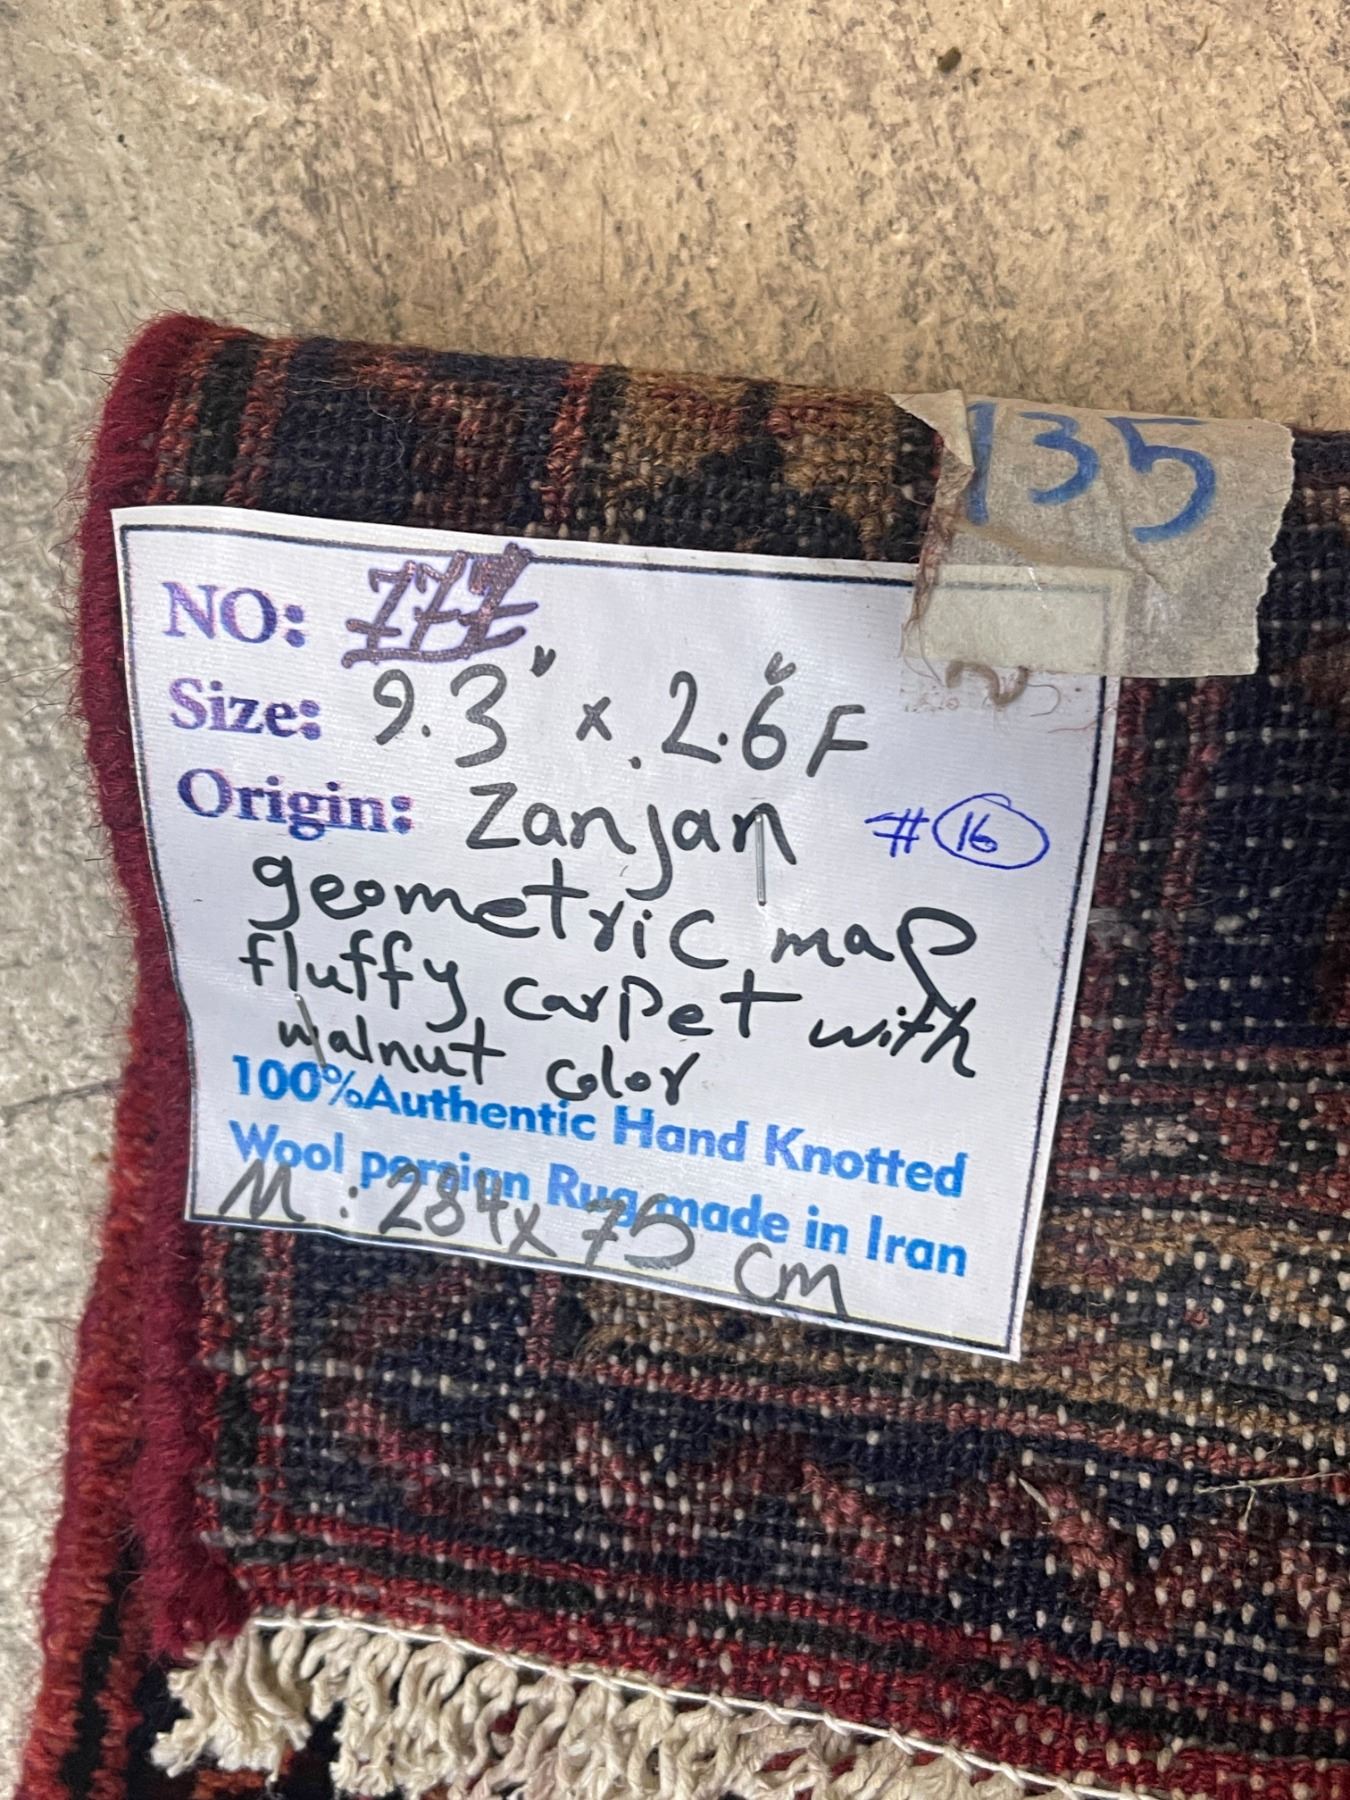 135
NO: 777
Size: 9.3" x 2.6" F
Origin: Zanjan # 16
geometric map
fluffy carpet with
walnut color
100%Authentic Hand Knotted
Wool persian Rug made in Iran
M: 284x75 cm